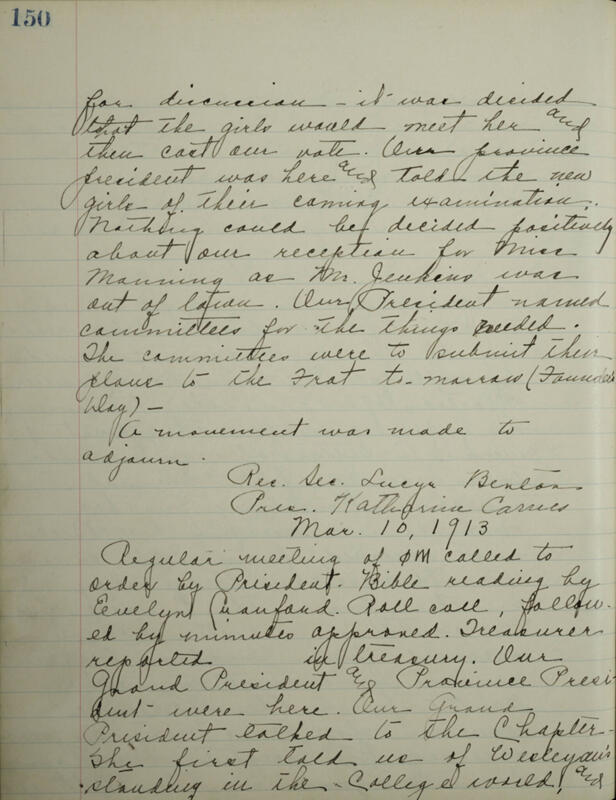 150
for discussion - it was decided
that the girls would meet her and
then cast our vote. Our province
president was here and told the new
girls of their coming examination.
Nothing could be decided positively
about our reception for Miss
Manning as Mr. Jenkins was
out of town. Our President named
committees for the things needed.
The committees were to submit their
plans to the Frat to-morrow (Founder's
Day) -
A movement was made to
adjourn.
Rec. Sec. Lucyr Benton
Pres. Katharine Carnes
Mar. 10, 1913
Regular meeting of ΦM called to
order by President. Bible reading by
Eevelyn. Roll call, follow-
ed by minutes approved. Treasurer
reported in treasury. Our
Grand President and Province Presi-
dent were here. Our Grand
President talked to the Chapter.
She first told us of Wesleyan's
standing in the College world, and